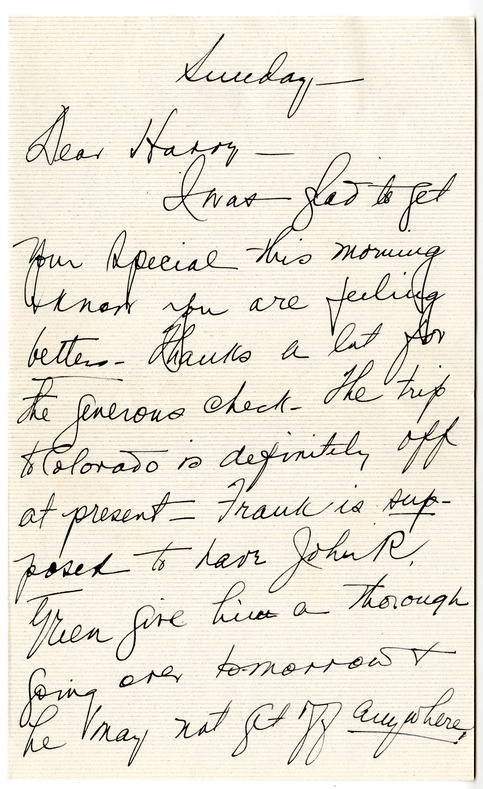 Sunday —
Dear Harry —
I was glad to get
your special this morning
& know you are feeling
better - Thanks a lot for
the generous check - The trip
to Colorado is definitely off
at present - Frank is sup-
posed to have John R.
Green give him a thorough
going over tomorrow &
he may not get off anywhere.